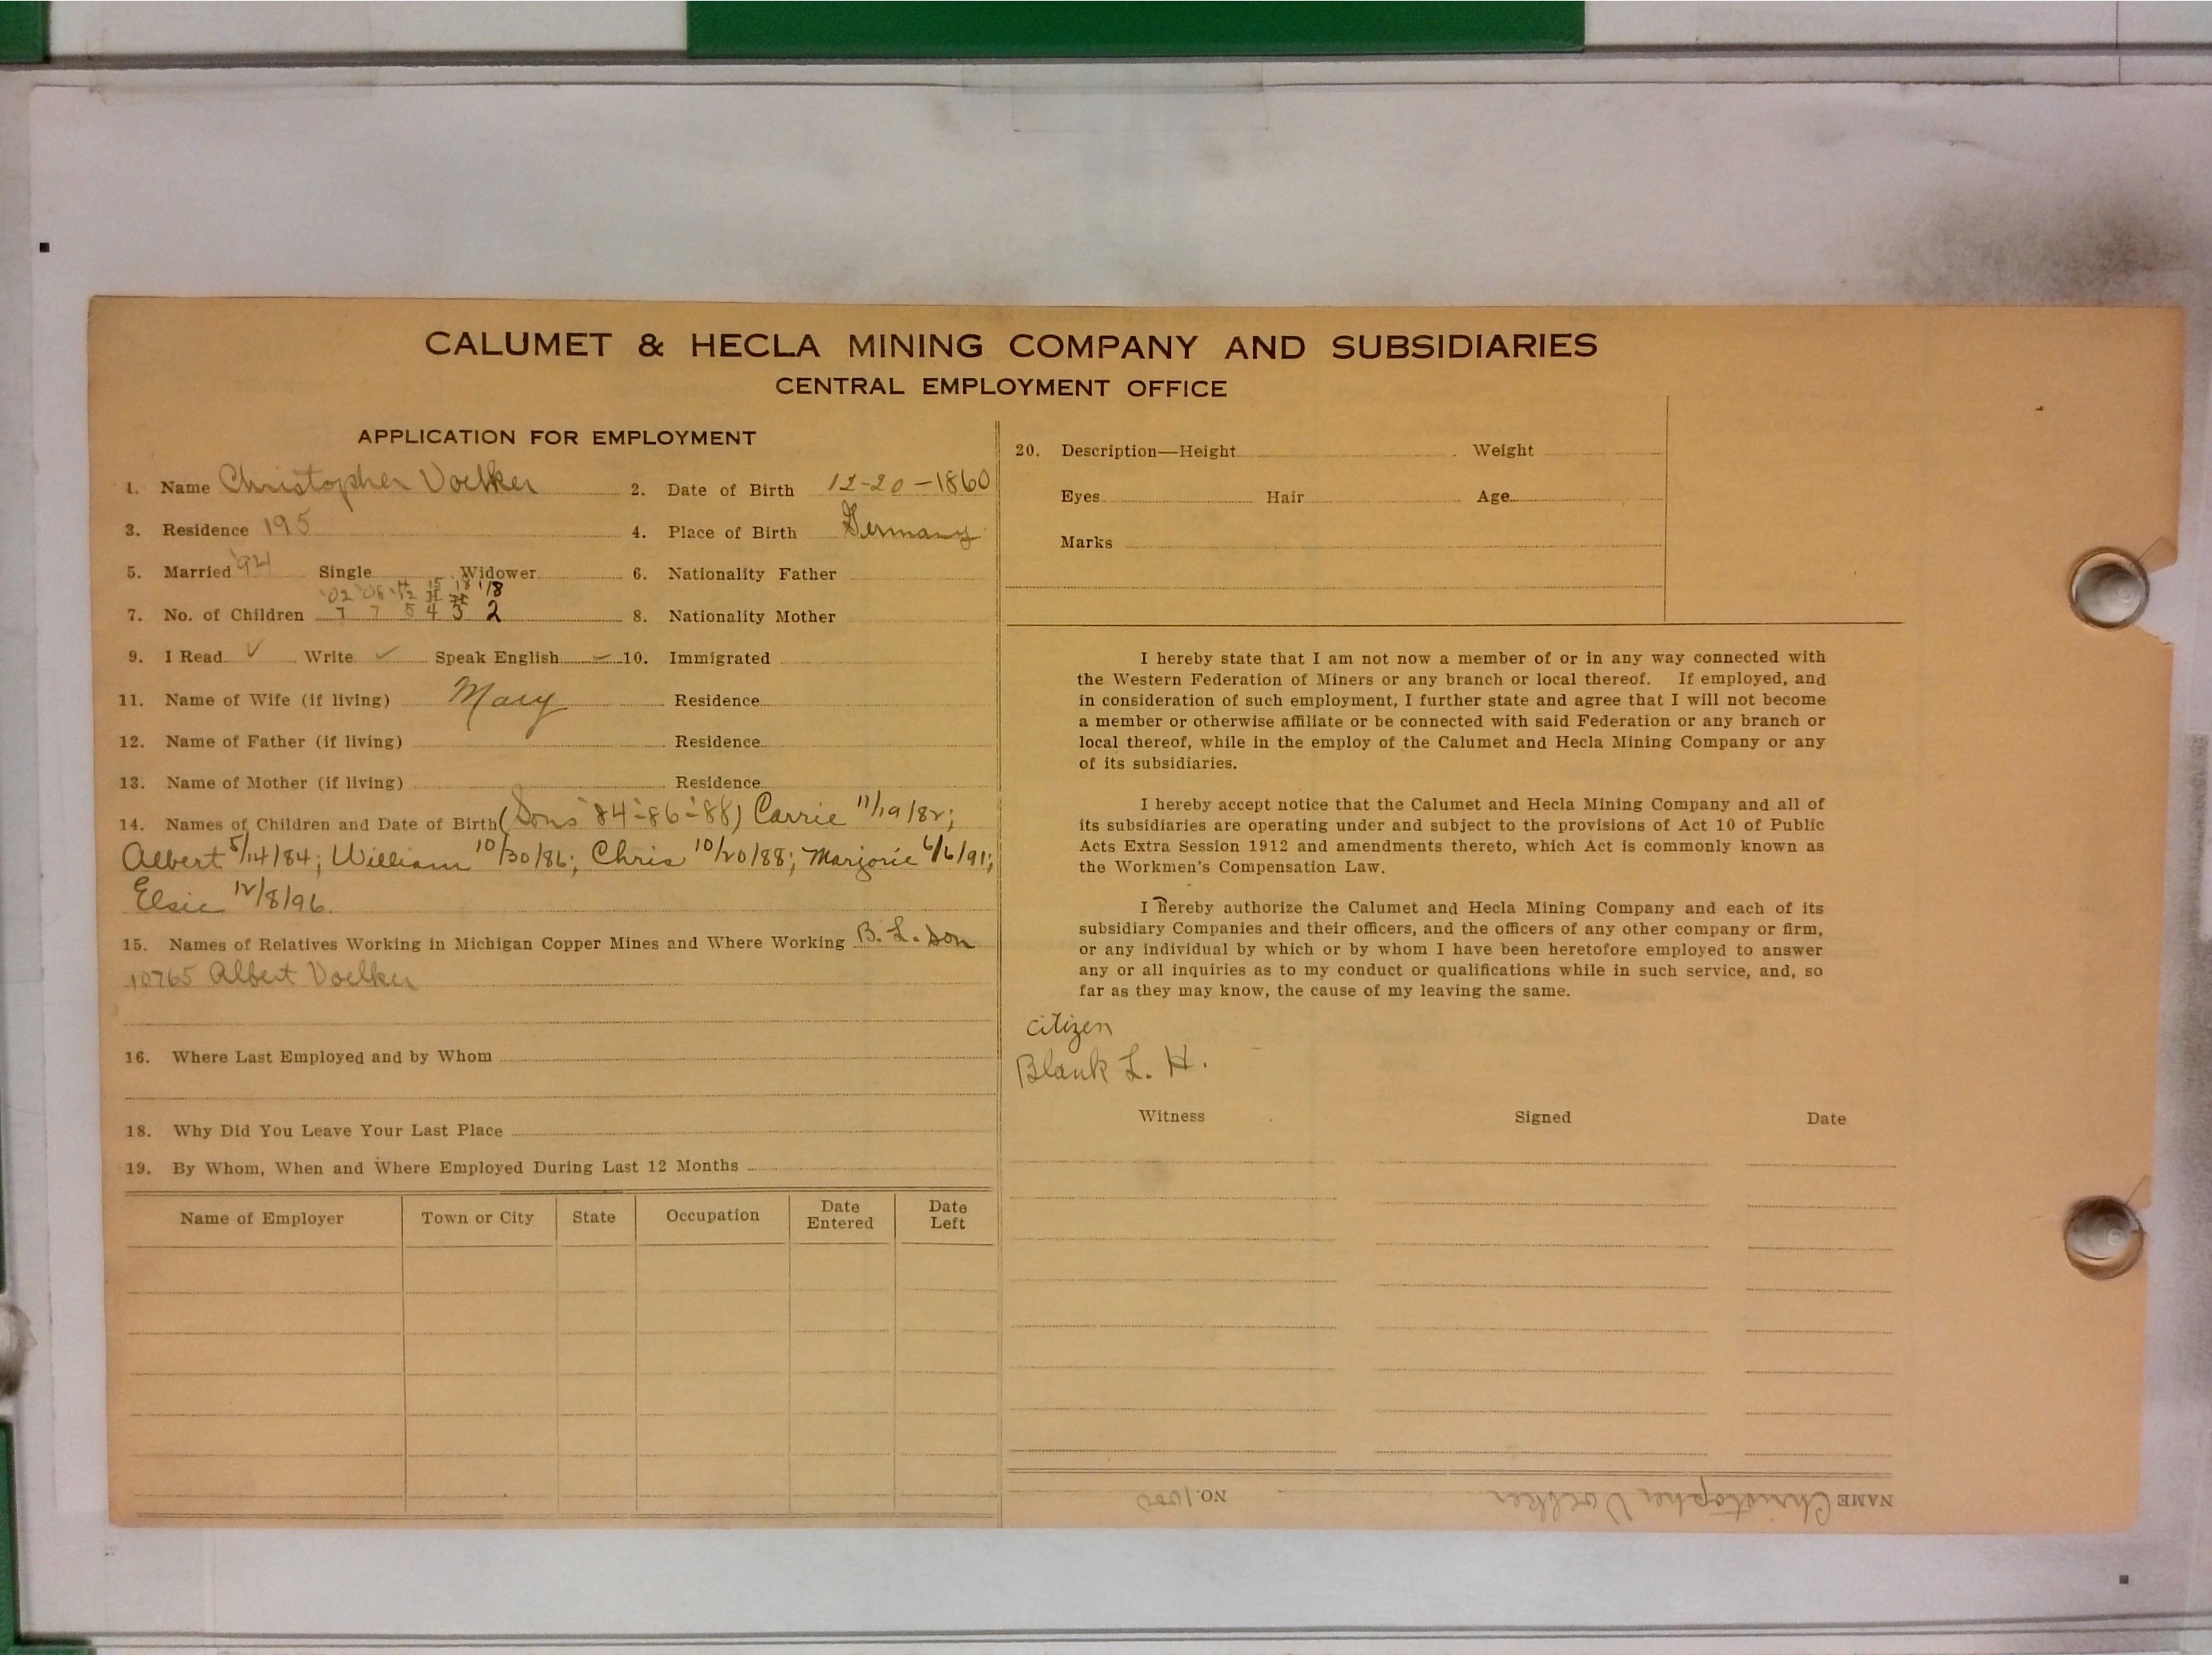 CALUMET & HECLA MINING COMPANY AND SUBSIDIARIES
CENTRAL EMPLOYMENT OFFICE
APPLICATION FOR EMPLOYMENT
1. Name Christopher Voelker 2. Date of Birth 12-20-1860
3. Residence 195 4. Place of Birth Germany
5. Married '94 Single Widower 6. Nationality Father
'02 '18
7. No. of Children 7 7 5 4 3 2 8. Nationality Mother
9. I Read ✓ Write ✓ Speak English – 10. Immigrated
11. Name of Wife (if living) Mary Residence
12. Name of Father (if living) Residence
13. Name of Mother (if living) Residence
14. Names of Children and Date of Birth (Sons '84-'86-'88) Carrie 11/19/82;
Albert 5/14/84; William 10/30/86; Chris 10/20/88; Marjorie 6/6/91;
Elsie 12/8/96.
15. Names of Relatives Working in Michigan Copper Mines and Where Working B. L. Son
10765 Albert Voelker
16. Where Last Employed and by Whom
18. Why Did You Leave Your Last Place
19. By Whom, When and Where Employed During Last 12 Months
Name of Employer Town or City State Occupation Date Entered Date Left
20. Description—Height Weight
Eyes Hair Age
Marks
I hereby state that I am not now a member of or in any way connected with
the Western Federation of Miners or any branch or local thereof. If employed, and
in consideration of such employment, I further state and agree that I will not become
a member or otherwise affiliate or be connected with said Federation or any branch or
local thereof, while in the employ of the Calumet and Hecla Mining Company or any
of its subsidiaries.
I hereby accept notice that the Calumet and Hecla Mining Company and all of
its subsidiaries are operating under and subject to the provisions of Act 10 of Public
Acts Extra Session 1912 and amendments thereto, which Act is commonly known as
the Workmen's Compensation Law.
I hereby authorize the Calumet and Hecla Mining Company and each of its
subsidiary Companies and their officers, and the officers of any other company or firm,
or any individual by which or by whom I have been heretofore employed to answer
any or all inquiries as to my conduct or qualifications while in such service, and, so
far as they may know, the cause of my leaving the same.
citizen
Blank L. H.
Witness Signed Date
NAME Christopher Voelker NO.